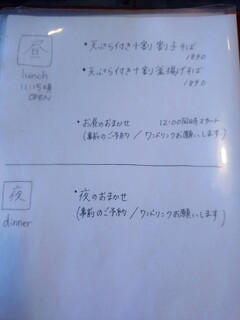 昼
lunch
11:15頃
OPEN
・天ぷら付き十割 割り子そば
1890
・天ぷら付き十割 釜揚げそば
1890
・お昼のおまかせ 12:00同時スタート
(事前のご予約/ワンドリンクお願いします)
夜
dinner
・夜のおまかせ
(事前のご予約/ワンドリンクお願いします)